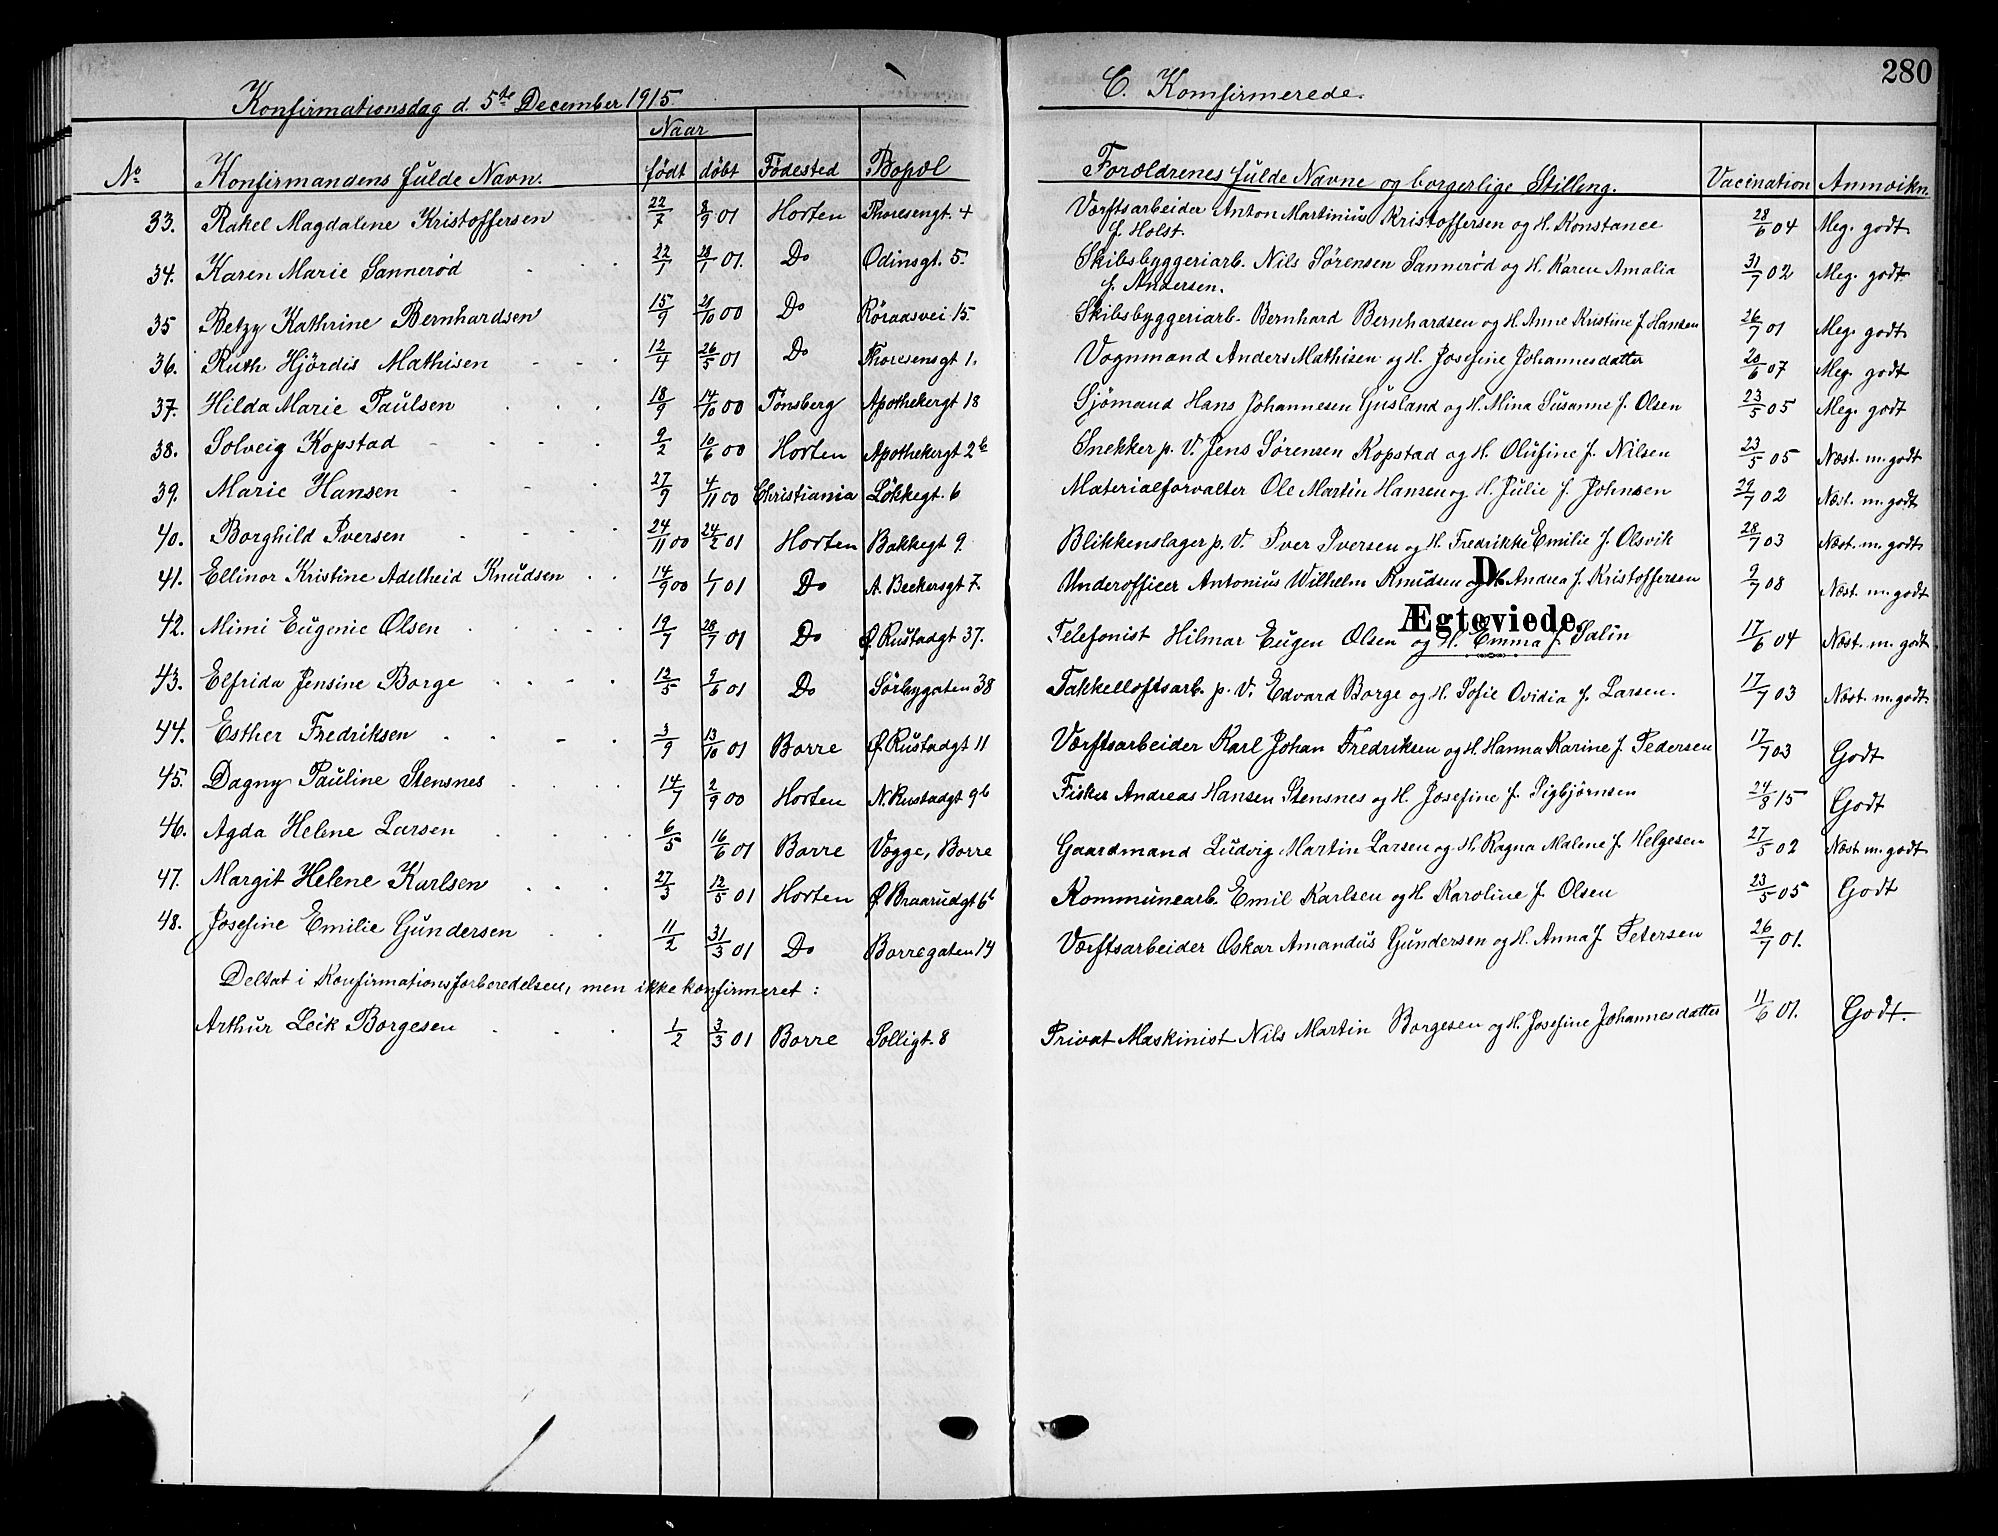 280
Konfirmationsdag d. 5te December 1915.
C. Komfirmerede.
No Konfirmandens fulde Navn. Naar født døbt Fødested Bopæl Forældrenes fulde Navne og borgerlige Stilling. Vacination Anmærkn.
33. Rakel Magdalene Kristoffersen 22/7 8/9 01 Horten Thoresengt 4 Værftsarbeider Anton Martinius Kristoffersen og H. Konstance 28/6 04 Meg. godt
f. Holst.
34. Karen Marie Sannerød 22/1 28/7 01. Do Odinsgt. 5. Skibsbyggeriarb. Nils Sørensen Sannerød og H. Karen Amalia 31/7 02 Meg. godt
f. Andersen.
35 Betzy Kathrine Bernhardsen 15/9 21/10 00 Do Røraasvei 15. Skibsbyggeriarb. Bernhard Bernhardsen og H. Anne Kristine f. Hansen 26/7 01 Meg. godt
36. Ruth Hjördis Mathisen 12/4 26/5 01 Do Thoresensgt 1. Vognmand Anders Mathisen og H. Josefine Johannesdatter 20/6 07 Meg. godt
37. Hilda Marie Paulsen 18/9 14/10 00 Tønsberg Apothekergt 18 Sjömand Hans Johannesen Gusland og H. Mina Susanne f. Olsen 23/5 05 Meg. godt
38. Solveig Kopstad 9/2 10/6 00 Horten Apothekergt 2b Snekker p. V. Jens Sørensen Kopstad og H. Olufine f. Nilsen 23/5 05 Næst. m. godt
39. Marie Hansen 27/9 4/11 00 Christiania Løkkegt. 6 Materialforvalter Ole Martin Hansen og H. Julie f. Johnsen 29/7 02 Næst. m. godt
40. Borghild Iversen 24/11 00 24/2 01 Horten Bakkegt 9. Blikkenslager p. V. Iver Iversen og H. Fredrikke Emilie f. Olsvik 28/7 03 Næst. m. godt
41. Ellinor Kristine Adelheid Knudsen 14/9 00 1/1 01 Do A. Beckersgt 7. Underofficer Antonius Wilhelm Knudsen og H. Andrea f. Kristoffersen 9/7 08 Næst. m. godt
D.
Ægteviede.
42. Mimi Eugenie Olsen 19/7 28/7 01 Do Ø. Rustadgt 37. Telefonist Hilmar Eugen Olsen og H. Emma f. Salin 17/6 04 Næst. m. godt
43. Elfrida Jensine Borge 12/5 9/6 01 Do Sørbygaten 38 Takkelloftsarb. p. V. Edvard Borge og H. Sofie Ovidia f. Larsen. 17/7 03 Næst. m. godt.
44. Esther Fredriksen 3/9 13/10 01 Borre Ø. Rustadgt 11 Værftsarbeider Karl Johan Fredriksen og H. Hanna Karine f. Pedersen 17/7 03 Godt
45. Dagny Pauline Stensnes 14/7 2/9 00 Horten N. Rustadgt 9b Fisker Andreas Hansen Stensnes og H. Josefine f. Sigbjørnsen 24/8 15 Godt
46. Agda Helene Larsen 6/5 16/6 01 Borre Vegge, Borre Gaardmand Ludvig Martin Larsen og H. Ragna Malene f. Helgesen 27/5 02 Næst m. godt
47. Margit Helene Karlsen 27/3 12/5 01 Horten Ø. Braarudgt 6b Kommunearb. Emil Karlsen og H. Karoline f. Olsen 23/5 05 Godt
48. Josefine Emilie Gundersen 11/2 31/3 01 Do Borregaten 14 Værftsarbeider Oskar Amandus Gundersen og H. Anna f. Petersen 26/7 01.
Deltat i Konfirmationsforberedelsen, men ikke konfirmeret:
Arthur Leik Borgesen 1/2 3/3 01 Borre Solligt. 8 Privat Maskinist Nils Martin Borgesen og H. Josefine Johannesdatter 11/6 01. Godt.